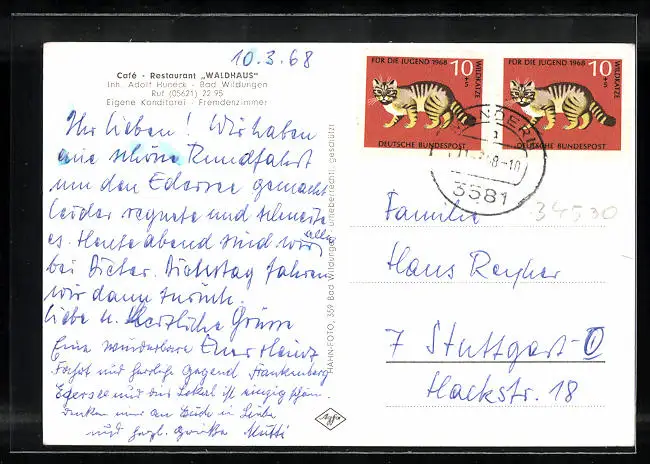 10.3.68
Café - Restaurant „WALDHAUS"
Inh. Adolf Huneck - Bad Wildungen
Ruf (05621) 22 95
Eigene Konditorei - Fremdenzimmer
Ihr Lieben! Wir haben
eine schöne Rundfahrt
um den Edersee gemacht
leider regnete und schneite
es. Heute abend sind wir alle
bei Dieter. Dienstag fahren
wir dann zurück.
Liebe u. Herzliche Grüsse
Eine wunderbare Euer Heinz
Fahrt und herrliche Gegend Frankenberg
Edersee und das Lokal ist einzig schön.
denken an Euch in Liebe
und herzl. Grüße Mutti
HAHN-FOTO, 359 Bad Wildungen, urheberrechtl. geschützt
Agfa
FÜR DIE JUGEND 1968
10+5
WILDKATZE
DEUTSCHE BUNDESPOST
FÜR DIE JUGEND 1968
10+5
WILDKATZE
DEUTSCHE BUNDESPOST
3581
34530
Familie
Hans
7 Stuttgart-O
Hackstr. 18